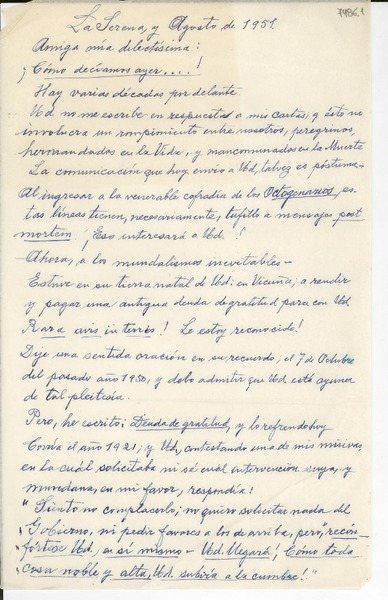 7486.1
La Serena, y Agosto de 1951.
Amiga mía delectísima:
¡Cómo decíamos ayer....!
Hay varias décadas por delante.
Ud. no me escribe en respuestas a mis cartas; y ésto no
involucra un rompimiento entre nosotros, peregrinos,
hermandados en la Vida, y mancomunados en la Muerte
La comunicación que hoy envío a Ud, talvez es póstuma-
Al ingresar a la venerable cofradía de los Octogenarios, es-
tas líneas tienen, necesariamente, tufillo a mensajes post
mortem ¡Eso interesará a Ud.!
-Ahora, a los mundalismos inevitables-
Estuve en su tierra natal de Ud: en Vicuña; a rendir
y pagar una antigua deuda de gratitud para con Ud.
Rara avis in terris! Le estoy reconocido!
Dije una sentida oración en su recuerdo; el 7 de Octubre
del pasado año 1950, y debo admitir que Ud. está ayuna
de tal pleitesía.
Pero, he escrito: Deuda de gratitud, y lo refrendo hoy
Corría el año 1921; y Ud, contestando una de mis misivas,
en la cuál solicitaba ni sé cuál intervención suya, y
mundana, en mi favor, respondía:
"Siento no complacerlo; no quiero solicitar nada del
"Gobierno, ni pedir favores a los de arriba, pero, recón-
"fórtese Ud, en sí mismo - Ud. llegará! Cómo toda
"cosa noble y alta, Ud. subiría a la cumbre!"